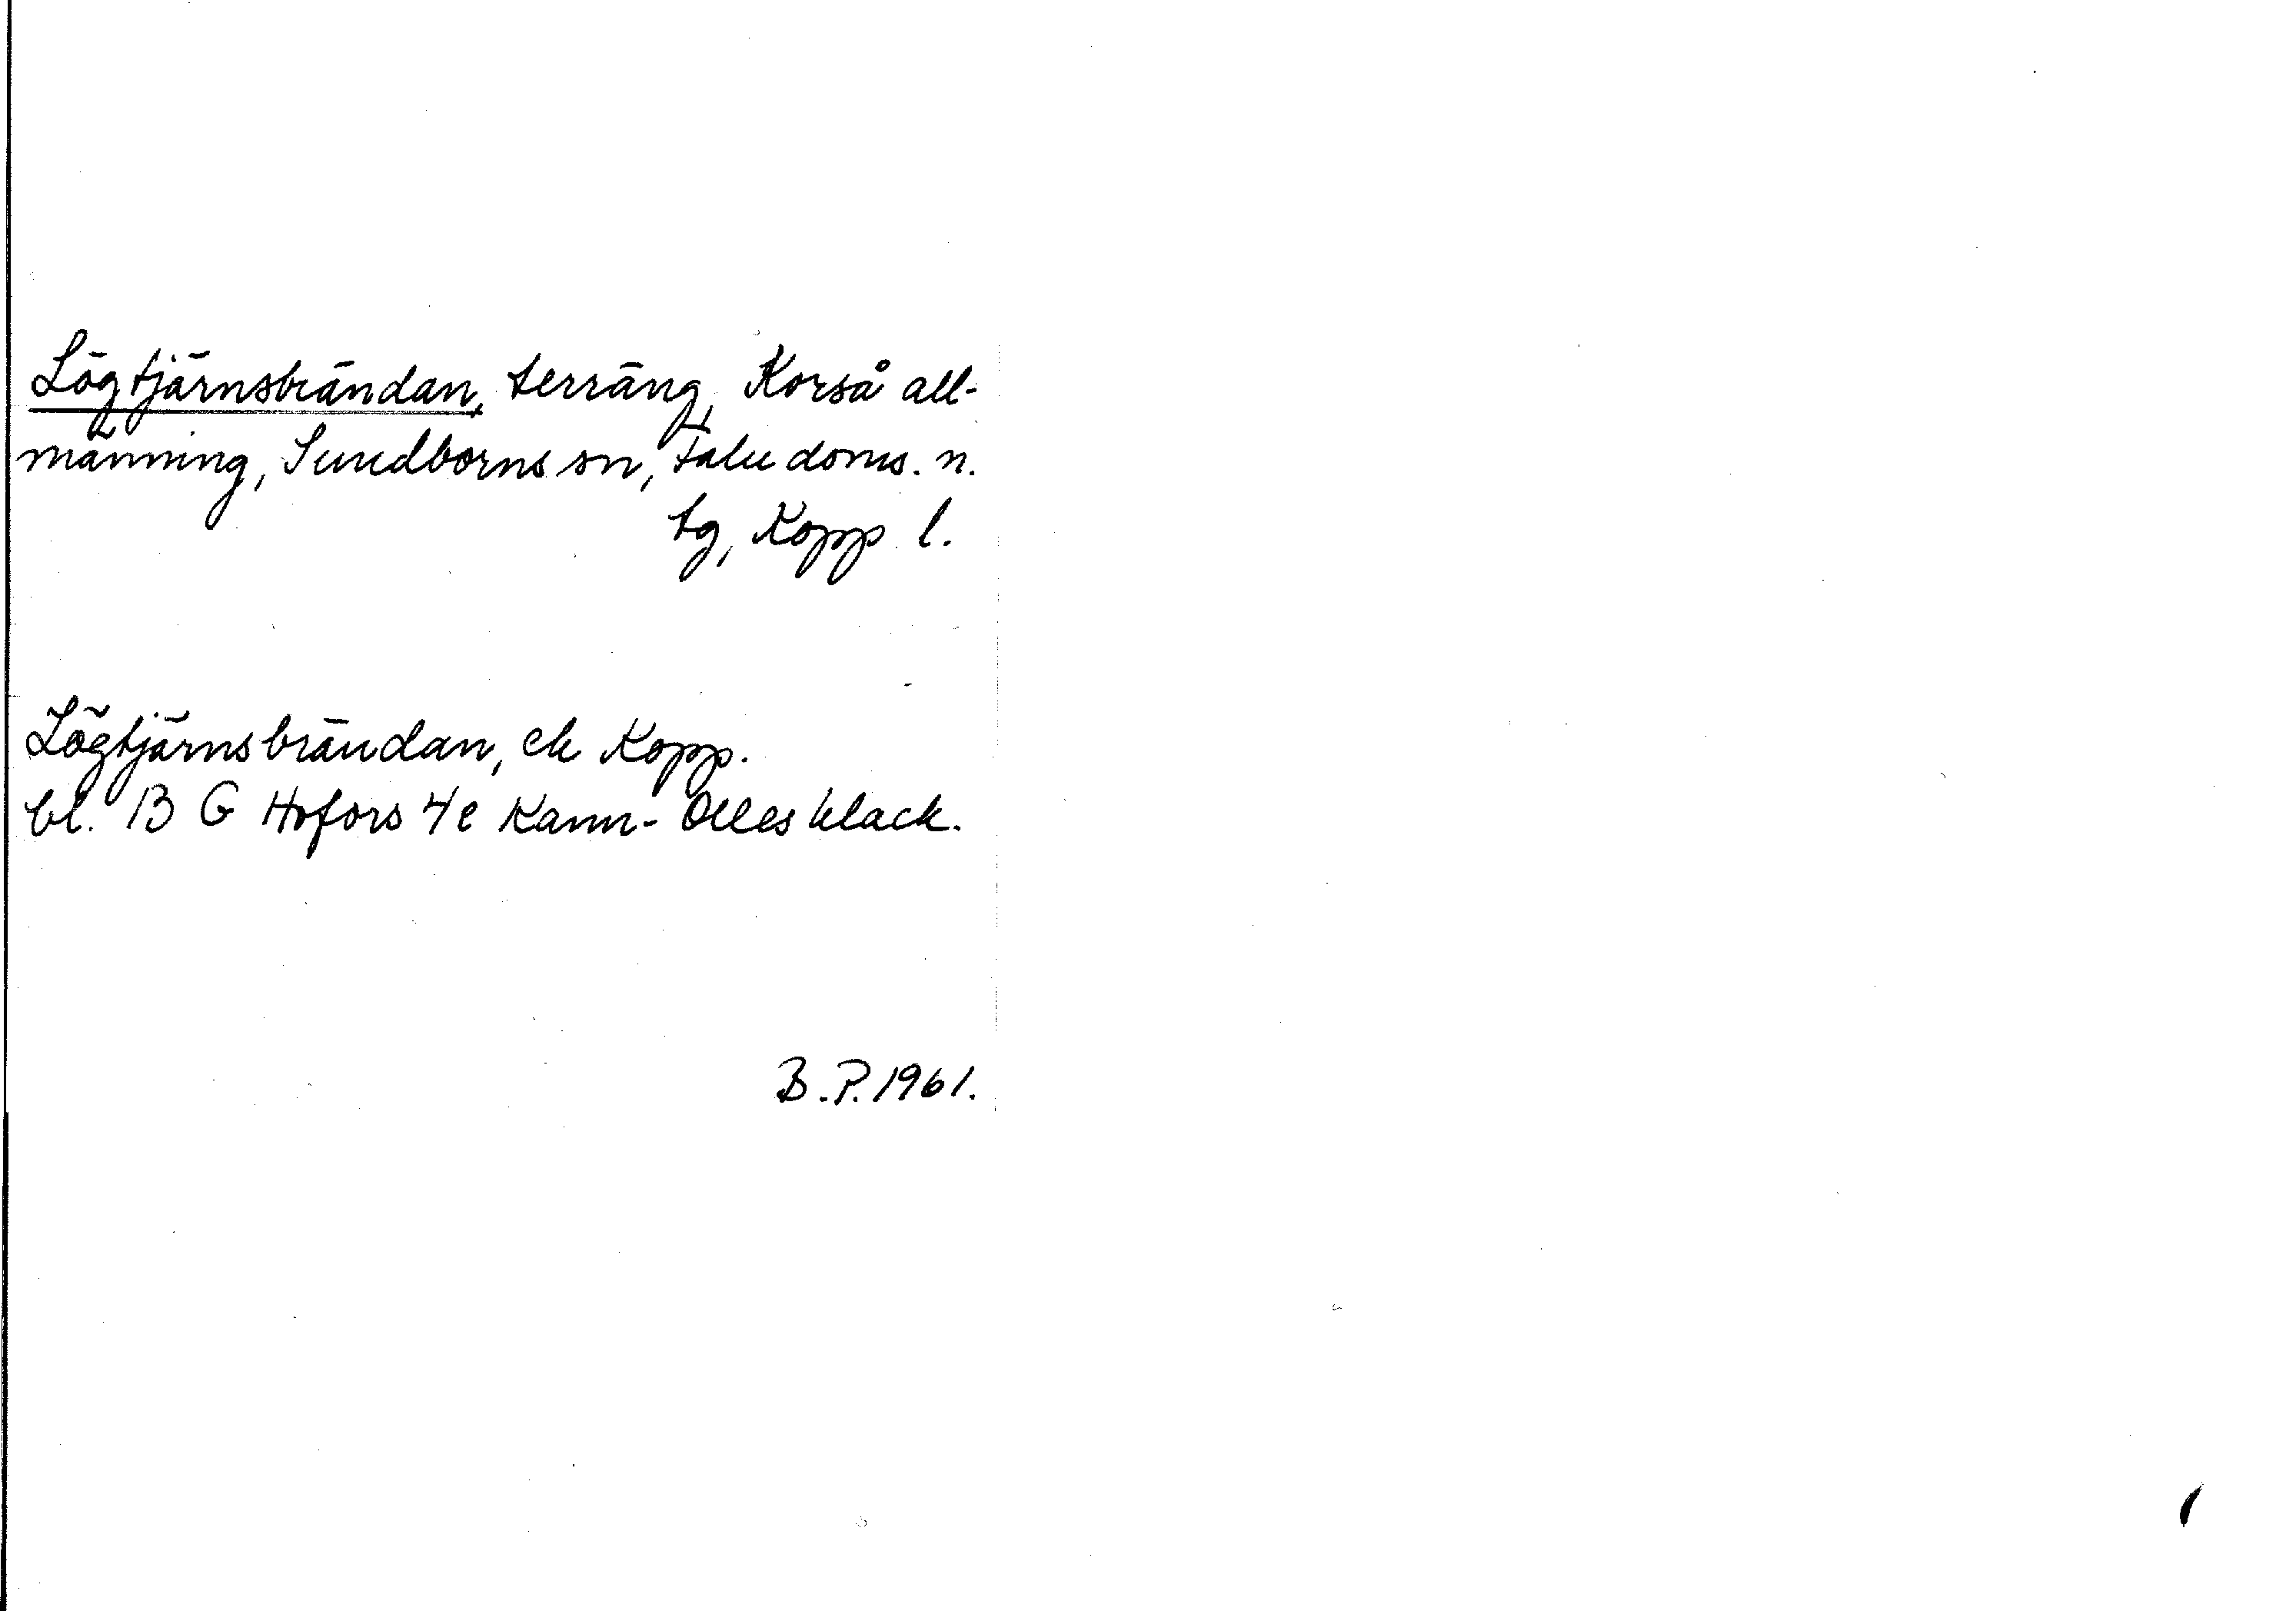 Lögtjärnsbrändan, terräng, Korså all-
männing, Sundborns sn, Falu doms. n.
tg, Kopp l.
Lögtjärnsbrändan, ek Kopp.
bl. 13 G Hofors 4e Karin-Olles klack.
B.P. 1961.